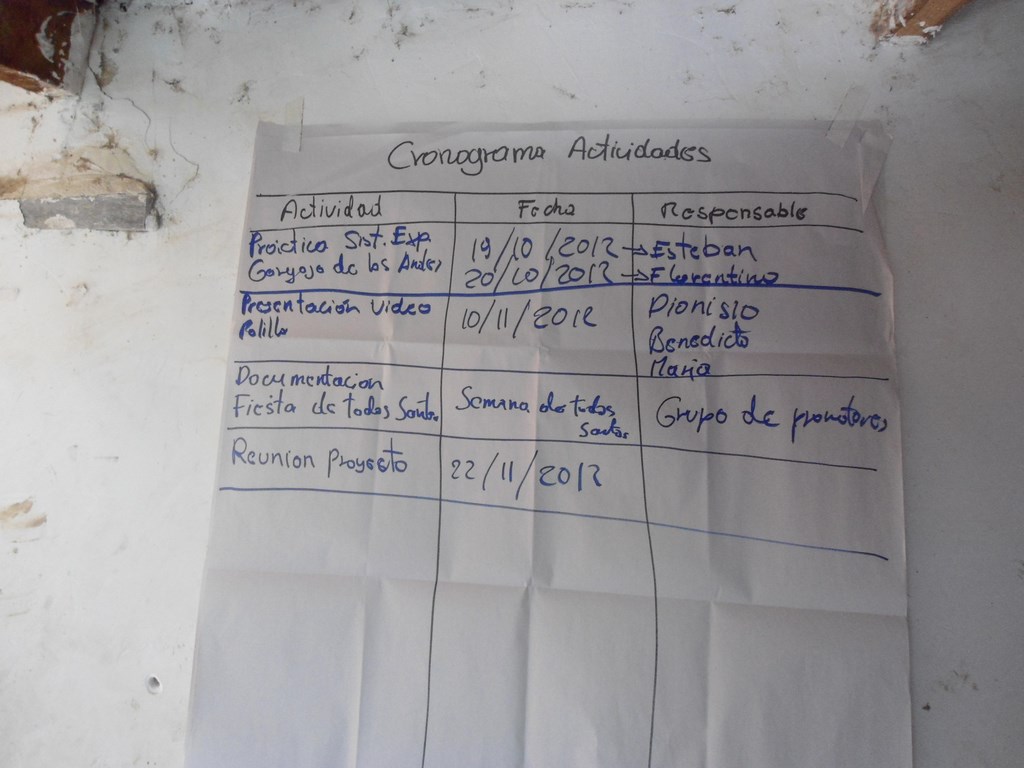 Cronograma Actividades
Actividad Fecha Responsable
Práctica Sist. Exp. 19/10/2012 → Esteban
Gorgojo de los Andes 20/10/2012 → Florentino
Presentación video 10/11/2012 Dionisio
Polilla Benedicto
Maria
Documentación Semana de todos Grupo de promotores
Fiesta de todos Santos santos
Reunion Proyecto 22/11/2012